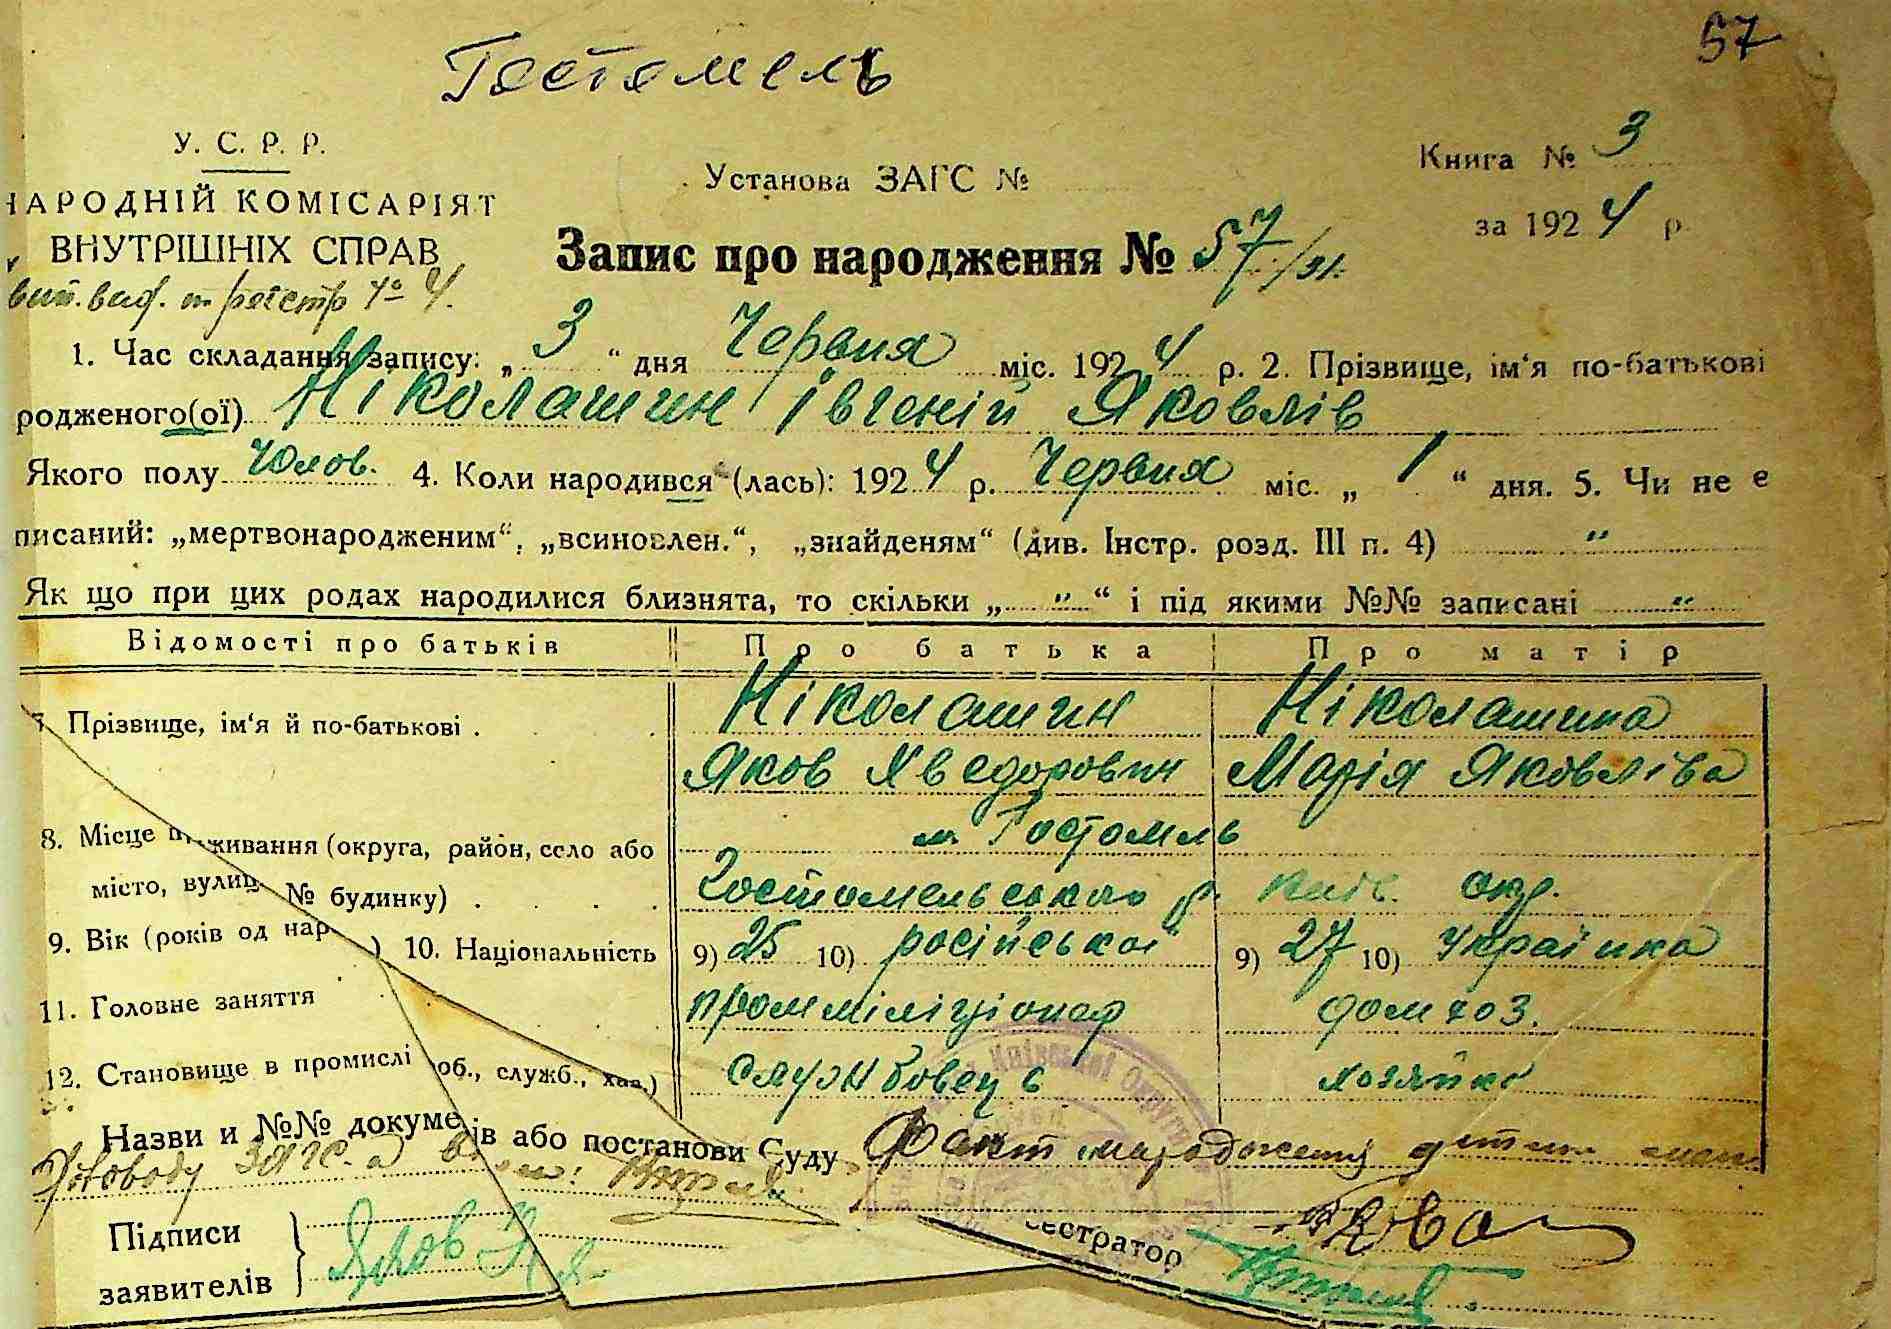 57
Гостомель
У. С. Р. Р.
НАРОДНІЙ КОМІСАРІЯТ
ВНУТРІШНІХ СПРАВ
Установа ЗАГС №
Книга № 3
за 1924 р.
Запис про народження № 57
реєстр № 4.
1. Час складання запису: „ 3 “ дня Червня міс. 1924 р. 2. Прізвище, ім‘я по-батькові
родженого(ої) Ніколашин Івгеній Яковлів
Якого полу Чолов. 4. Коли народився (лась): 1924 р. Червня міс. „ 1 “ дня. 5. Чи не є
писаний: „мертвонародженим“, „всиновлен.“, „знайденям“ (див. Інстр. розд. III п. 4) "
Як що при цих родах народилися близнята, то скільки „ " “ і під якими №№ записані "
Відомості про батьків Про батька Про матір
7. Прізвище, ім‘я й по-батькові . Ніколашин Ніколашина
Яков Хведорович Марія Яковлівa
8. Місце живання (округа, район, село або м. Гостомль
місто, вулиц. № будинку) . Гостомельського р. Київ. окр.
9. Вік (років од нар ) 10. Національність 9) 25 10) російська 9) 27 10) Українка
11. Головне заняття проммиліціонер домхоз.
12. Становище в промислі об., служб., хаз.) службовець хозяйка
Назви и №№ докуме ів або постанови Суду Факт народження дитини
Підписи
заявителів
Яков
естратор